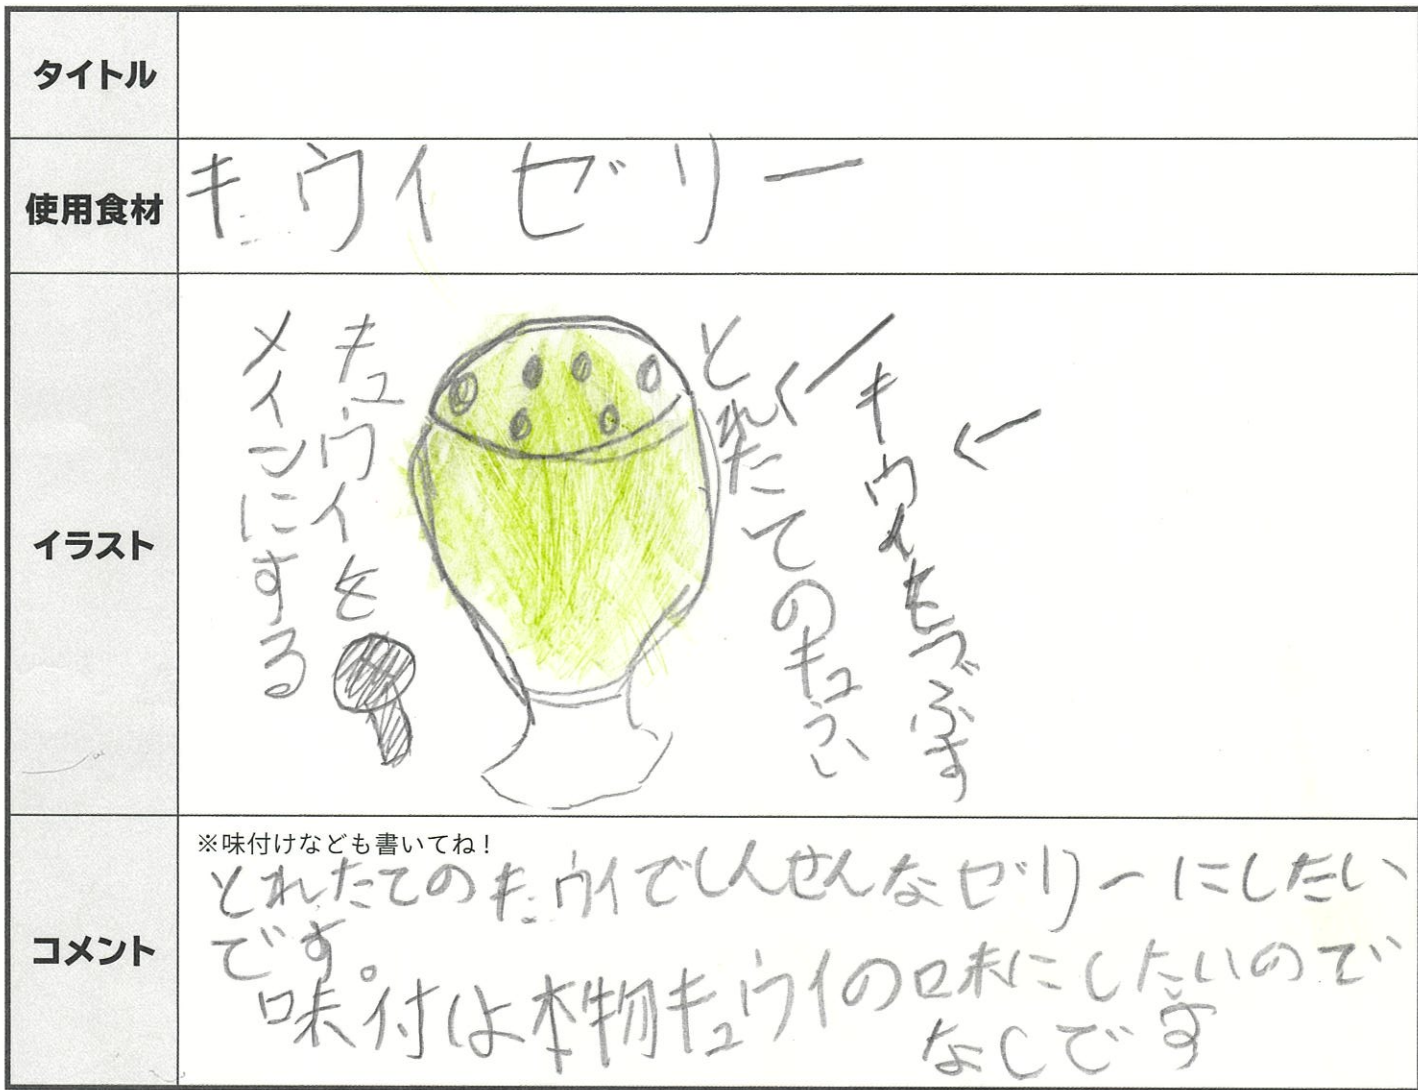 タイトル
使用食材
キウイゼリー
イラスト
キュウイを
メインにする
とれたてのキュうい
キウイをつぶす
コメント
※味付けなども書いてね！
とれたてのキュウイでしんせんなゼリーにしたい
です。
味付は本物キュウイの味にしたいので
なしです